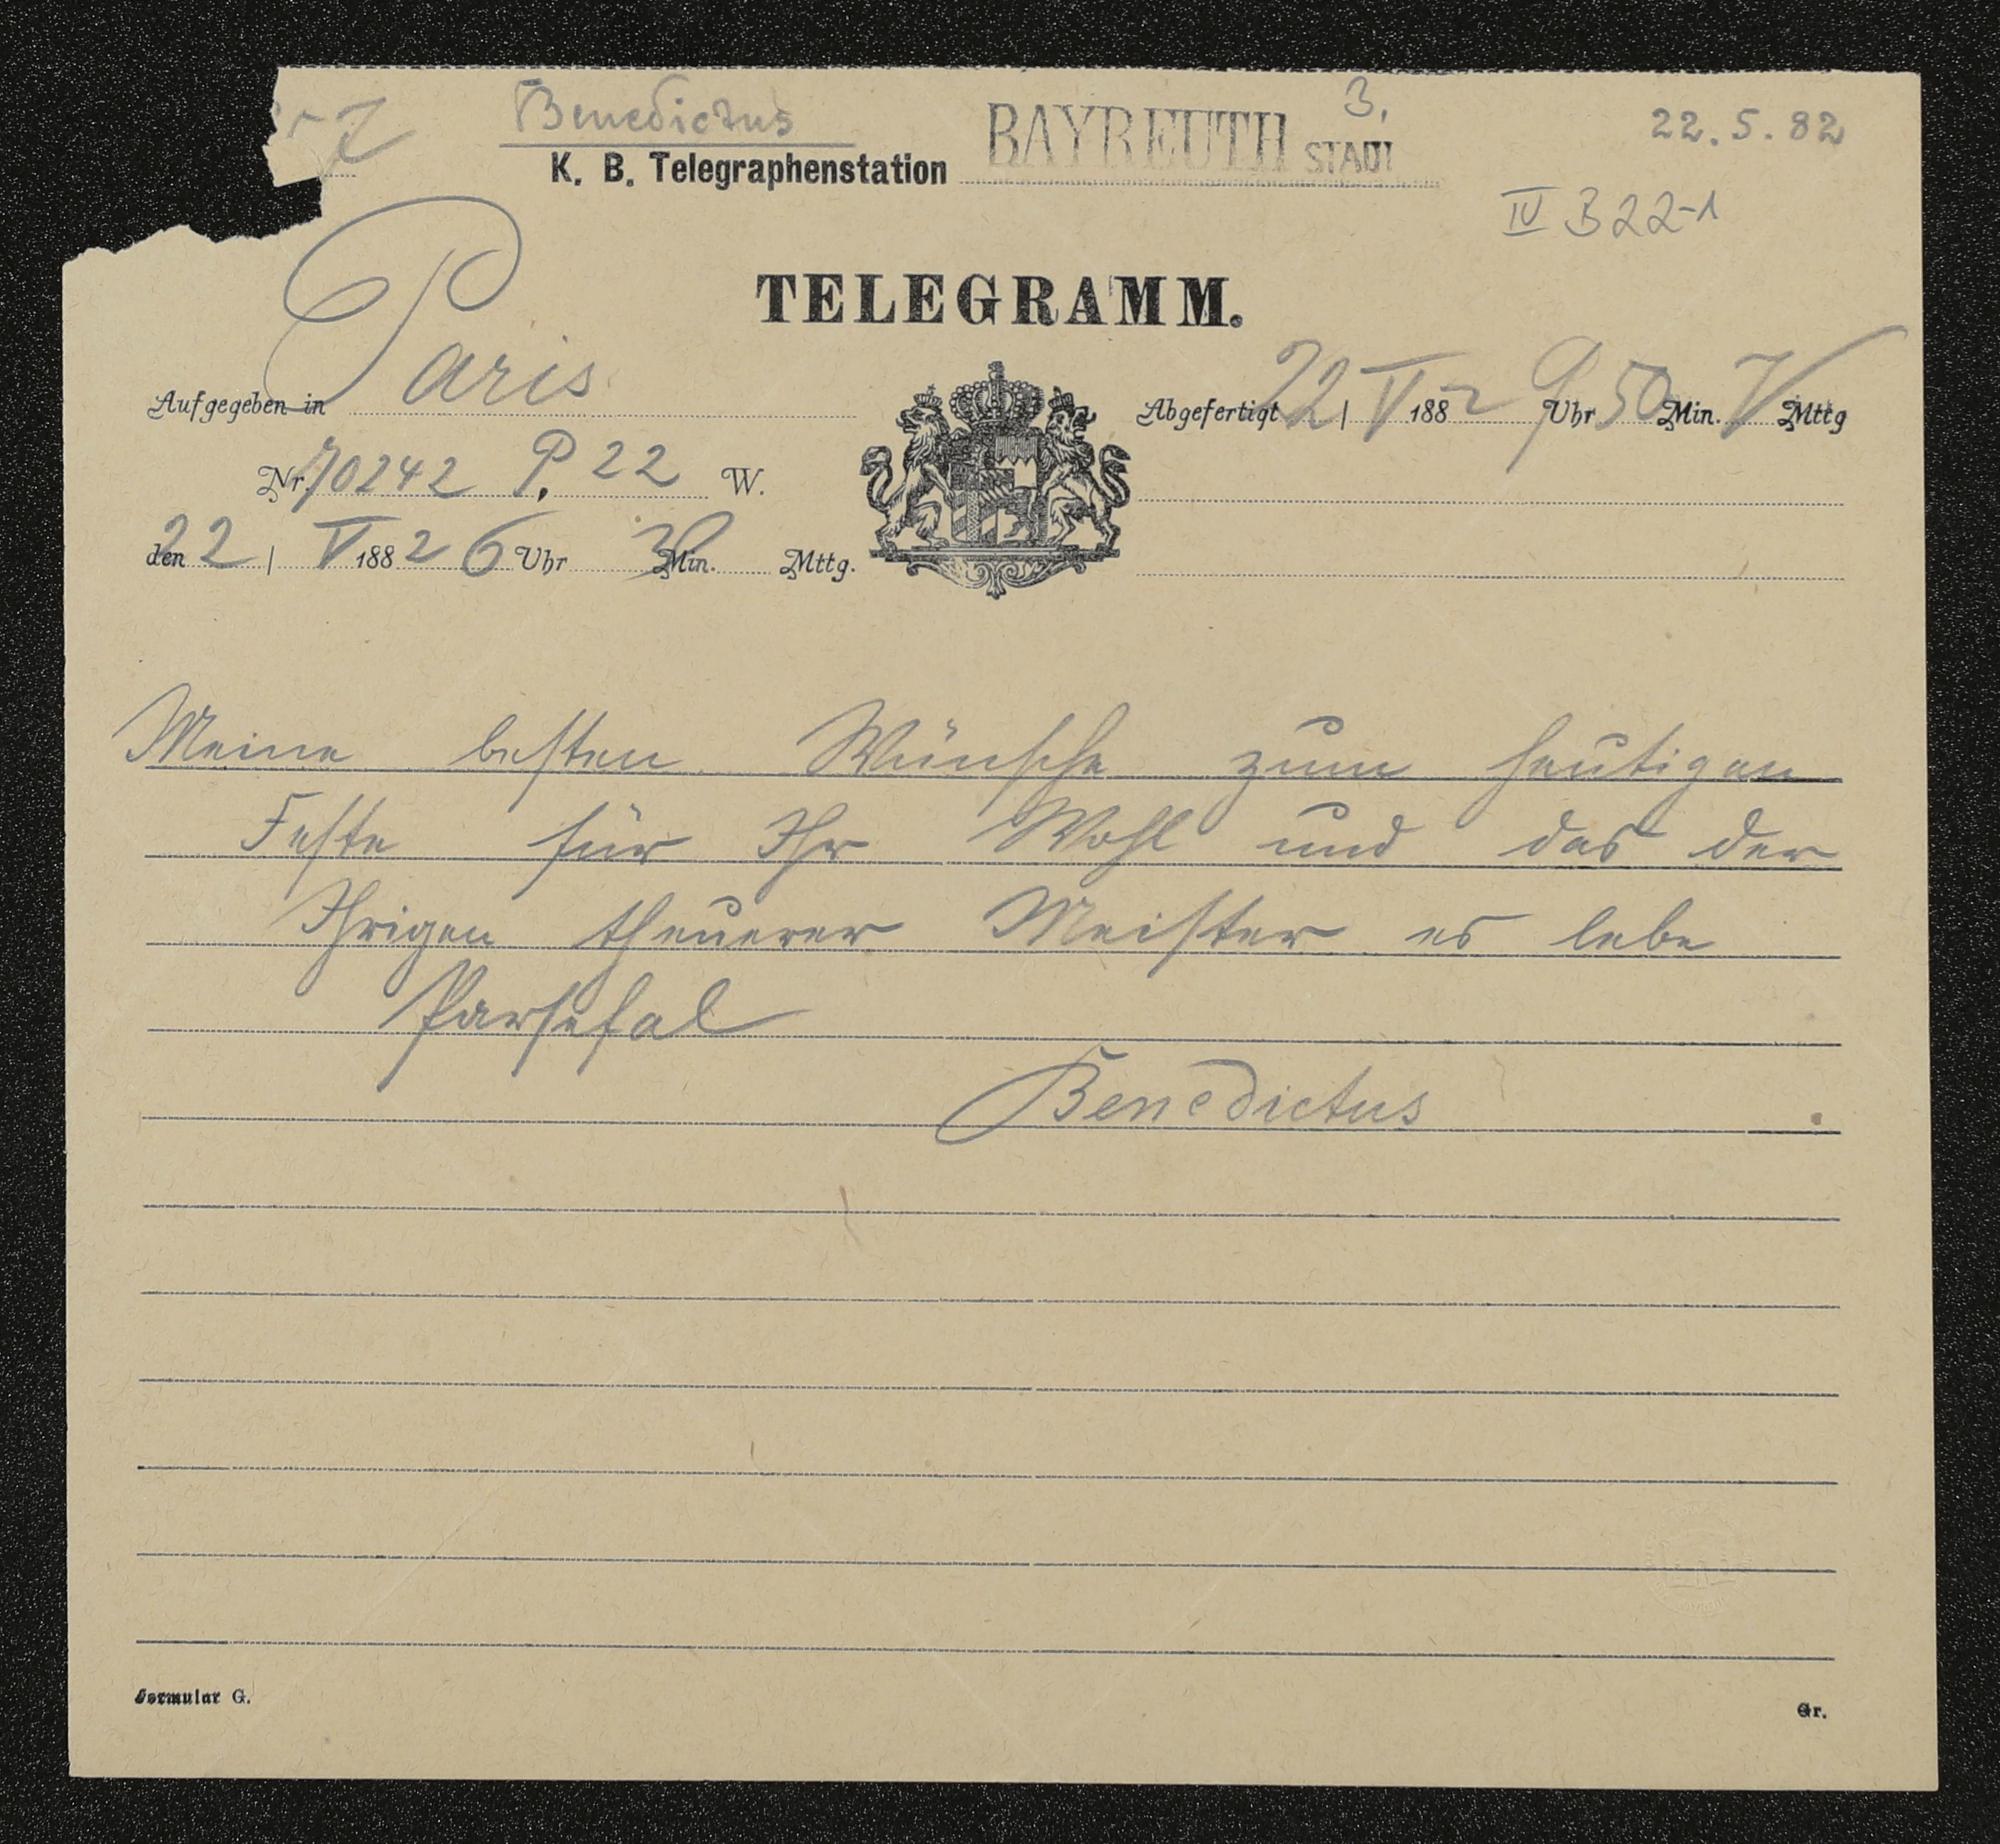 Benedictus
3.
22.5.82
K. B. Telegraphenstation BAYREUTH STADT
IV B 22-1
TELEGRAMM.
Aufgegeben in Paris
Abgefertigt 22 | V 1882 9 Uhr 50 Min. V Mttg
Nr. 70242 P. 22 W.
den 22 | V 1882 6 Uhr 30 Min. Mttg.
Meine besten Wünsche zum heutigen
Feste für Ihr Wohl und das der
Ihrigen theuerer Meister es lebe
Parsefal
Benedictus
Formular G.
Gr.